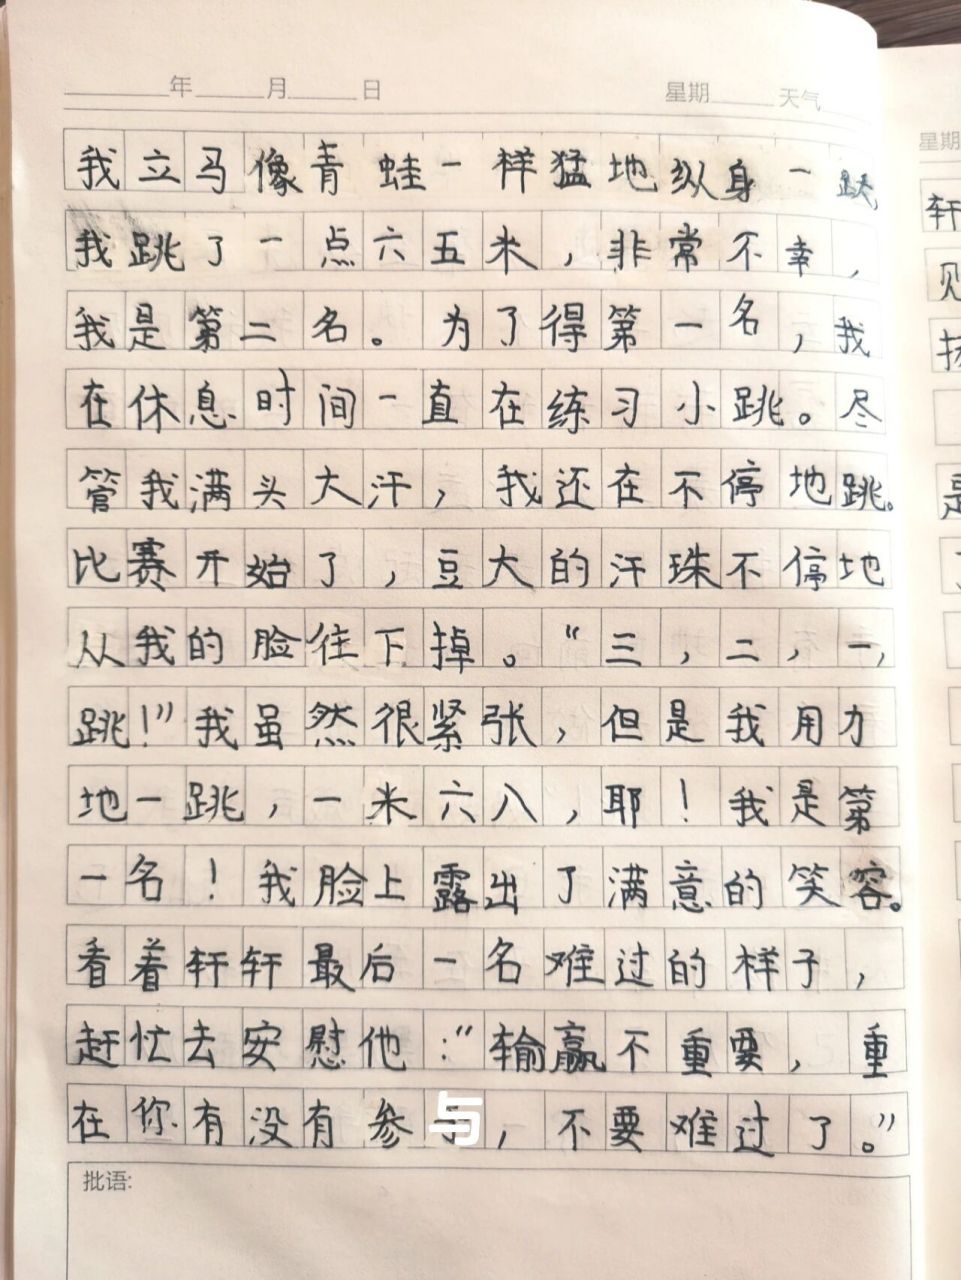 年 月 日 星期 天气
我立马像青蛙一样猛地纵身一跃,
我跳了一点六五米，非常不幸，
我是第二名。为了得第一名，我
在休息时间一直在练习小跳。尽
管我满头大汗，我还在不停地跳。
比赛开始了，豆大的汗珠不停地
从我的脸往下掉。“三，二，一，
跳！”我虽然很紧张，但是我用力
地一跳，一米六八，耶！我是第
一名！我脸上露出了满意的笑容。
看着轩轩最后一名难过的样子，
赶忙去安慰他：“输赢不重要，重
在你有没有参与，不要难过了。”
批语:
星期
轩
是